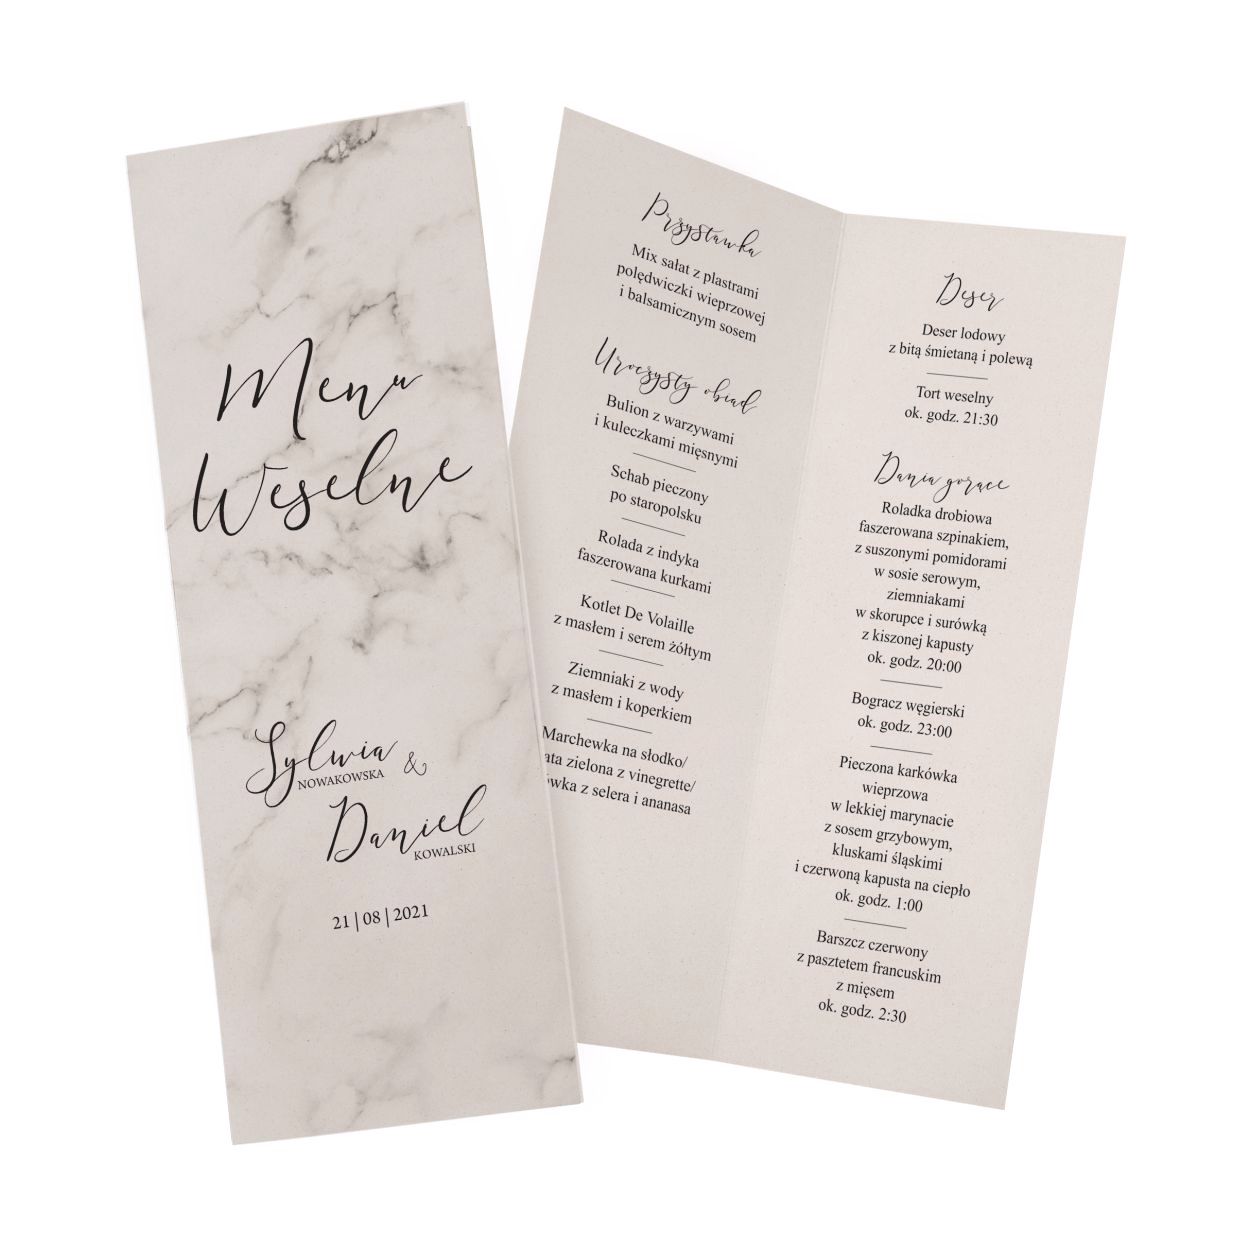 Menu
Weselne
Sylwia
NOWAKOWSKA
&
Daniel
KOWALSKI
21 | 08 | 2021
Przystawka
Mix sałat z plastrami
polędwiczki wieprzowej
i balsamicznym sosem
Uroczysty obiad
Bulion z warzywami
i kuleczkami mięsnymi
Schab pieczony
po staropolsku
Rolada z indyka
faszerowana kurkami
Kotlet De Volaille
z masłem i serem żółtym
Ziemniaki z wody
z masłem i koperkiem
Marchewka na słodko/
zielona z vinegrette/
z selera i ananasa
Deser
Deser lodowy
z bitą śmietaną i polewą
Tort weselny
ok. godz. 21:30
Dania gorące
Roladka drobiowa
faszerowana szpinakiem,
z suszonymi pomidorami
w sosie serowym,
ziemniakami
w skorupce i surówką
z kiszonej kapusty
ok. godz. 20:00
Bogracz węgierski
ok. godz. 23:00
Pieczona karkówka
wieprzowa
w lekkiej marynacie
z sosem grzybowym,
kluskami śląskimi
i czerwoną kapusta na ciepło
ok. godz. 1:00
Barszcz czerwony
z pasztetem francuskim
z mięsem
ok. godz. 2:30